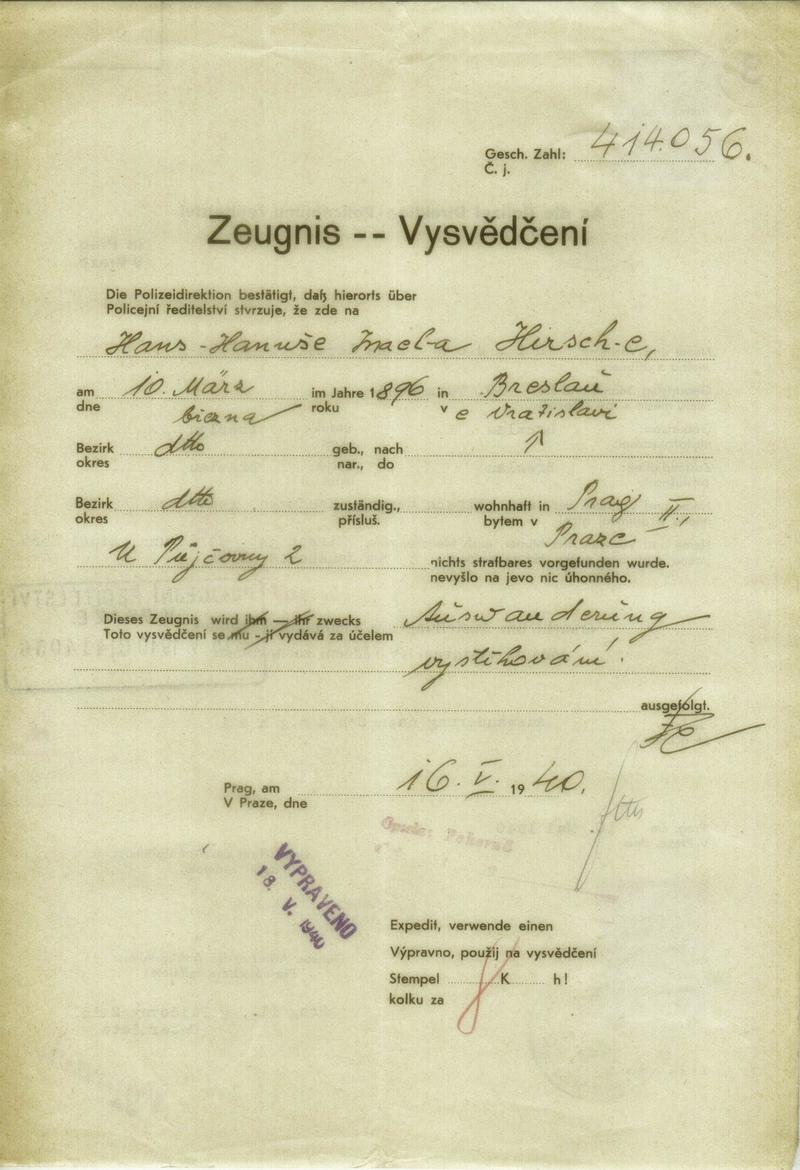 Gesch. Zahl: 414.056.
Č. j.
Zeugnis -- Vysvědčení
Die Polizeidirektion bestätigt, daß hierorts über
Policejní ředitelství stvrzuje, že zde na
Hans - Hanuše Israel-a Hirsch-e,
am 10. März im Jahre 1896 in Breslau
dne března roku v e Vratislavi
Bezirk dtto geb., nach
okres nar., do
Bezirk dtto zuständig., wohnhaft in Prag II.,
okres přísluš. bytem v Praze
U Půjčovny 2 nichts strafbares vorgefunden wurde.
nevyšlo na jevo nic úhonného.
Dieses Zeugnis wird ihm — ihr zwecks Auswanderung
Toto vysvědčení se mu - jí vydává za účelem
vystěhování.
ausgefolgt.
Prag, am 16. V. 1940.
V Praze, dne
VYPRAVENO
18. V. 1940
Expedit, verwende einen
Výpravno, použij na vysvědčení
Stempel K h!
kolku za